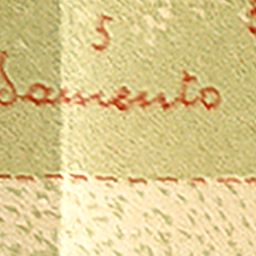 5
Samento